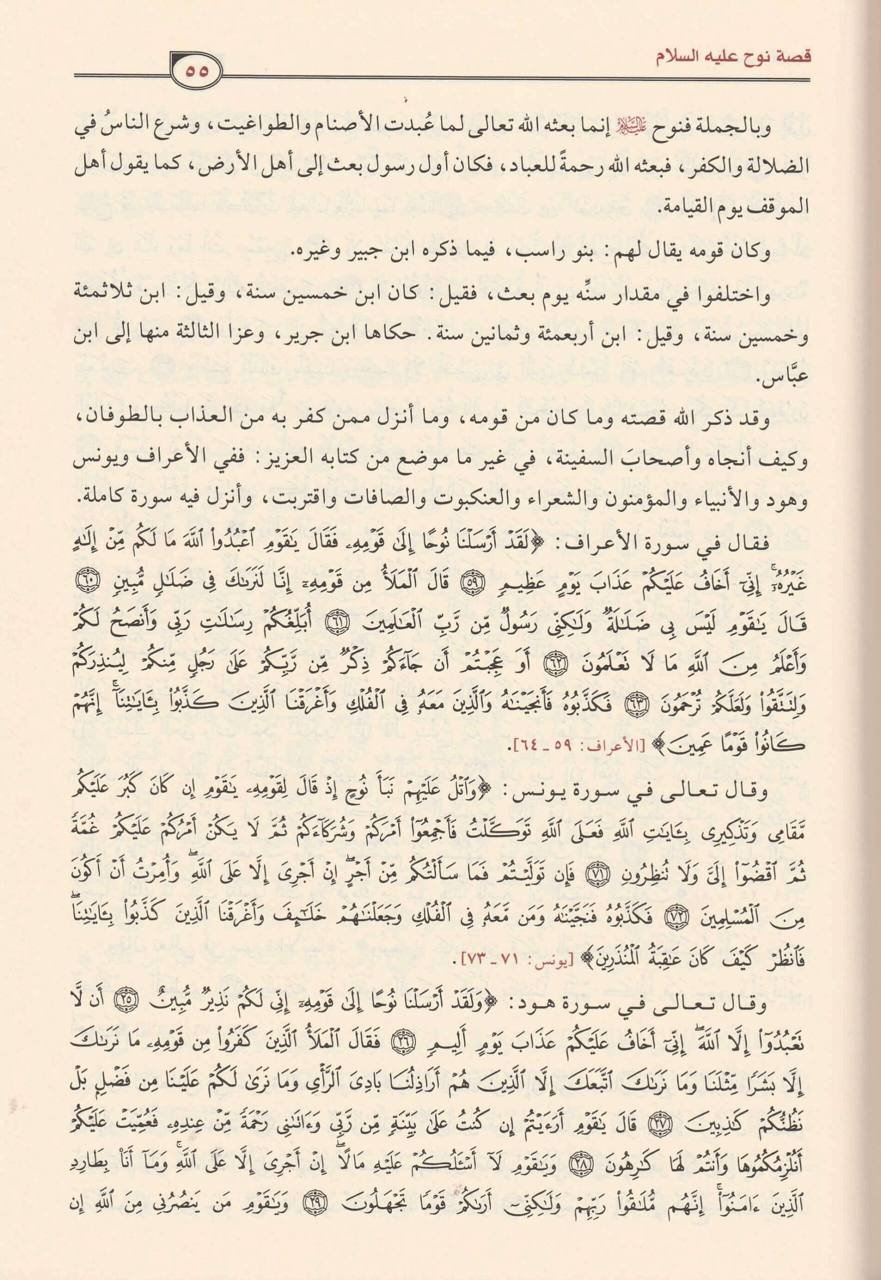 قصة نوح عليه السلام
٥٥
وبالجملة فنوح عليه السلام إنما بعثه الله تعالى لما عُبدت الأصنام والطواغيت، وشرع الناسُ في
الضلالة والكفر، فبعثه الله رحمةً للعباد، فكان أول رسول بعث إلى أهل الأرض، كما يقول أهل
الموقف يوم القيامة.
وكان قومه يقال لهم: بنو راسب، فيما ذكره ابن جبير وغيره.
واختلفوا في مقدار سنِّه يوم بعث، فقيل: كان ابن خمسين سنة، وقيل: ابن ثلاثمئة
وخمسين سنة، وقيل: ابن أربعمئة وثمانين سنة. حكاها ابن جرير، وعزا الثالثة منها إلى ابن
عبَّاس.
وقد ذكر الله قصته وما كان من قومه، وما أنزل ممن كفر به من العذاب بالطوفان،
وكيف أنجاه وأصحابَ السفينة، في غير ما موضع من كتابه العزيز: ففي الأعراف ويونس
وهود والأنبياء والمؤمنون والشعراء والعنكبوت والصافات واقتربت، وأنزل فيه سورة كاملة.
فقال في سورة الأعراف: ﴿لَقَدْ أَرْسَلْنَا نُوحًا إِلَىٰ قَوْمِهِۦ فَقَالَ يَٰقَوْمِ ٱعْبُدُوا۟ ٱللَّهَ مَا لَكُم مِّنْ إِلَٰهٍ
غَيْرُهُۥٓ إِنِّىٓ أَخَافُ عَلَيْكُمْ عَذَابَ يَوْمٍ عَظِيمٍ ﴿٥٩﴾ قَالَ ٱلْمَلَأُ مِن قَوْمِهِۦٓ إِنَّا لَنَرَىٰكَ فِى ضَلَٰلٍ مُّبِينٍ ﴿٦٠﴾
قَالَ يَٰقَوْمِ لَيْسَ بِى ضَلَٰلَةٌ وَلَٰكِنِّى رَسُولٌ مِّن رَّبِّ ٱلْعَٰلَمِينَ ﴿٦١﴾ أُبَلِّغُكُمْ رِسَٰلَٰتِ رَبِّى وَأَنصَحُ لَكُمْ
وَأَعْلَمُ مِنَ ٱللَّهِ مَا لَا تَعْلَمُونَ ﴿٦٢﴾ أَوَ عَجِبْتُمْ أَن جَآءَكُمْ ذِكْرٌ مِّن رَّبِّكُمْ عَلَىٰ رَجُلٍ مِّنكُمْ لِيُنذِرَكُمْ
وَلِتَتَّقُوا۟ وَلَعَلَّكُمْ تُرْحَمُونَ ﴿٦٣﴾ فَكَذَّبُوهُ فَأَنجَيْنَٰهُ وَٱلَّذِينَ مَعَهُۥ فِى ٱلْفُلْكِ وَأَغْرَقْنَا ٱلَّذِينَ كَذَّبُوا۟ بِـَٔايَٰتِنَآ إِنَّهُمْ
كَانُوا۟ قَوْمًا عَمِينَ﴾ [الأعراف: ٥٩ ـ ٦٤].
وقال تعالى في سورة يونس: ﴿وَٱتْلُ عَلَيْهِمْ نَبَأَ نُوحٍ إِذْ قَالَ لِقَوْمِهِۦ يَٰقَوْمِ إِن كَانَ كَبُرَ عَلَيْكُم
مَّقَامِى وَتَذْكِيرِى بِـَٔايَٰتِ ٱللَّهِ فَعَلَى ٱللَّهِ تَوَكَّلْتُ فَأَجْمِعُوٓا۟ أَمْرَكُمْ وَشُرَكَآءَكُمْ ثُمَّ لَا يَكُنْ أَمْرُكُمْ عَلَيْكُمْ غُمَّةً
ثُمَّ ٱقْضُوٓا۟ إِلَىَّ وَلَا تُنظِرُونِ ﴿٧١﴾ فَإِن تَوَلَّيْتُمْ فَمَا سَأَلْتُكُم مِّنْ أَجْرٍ إِنْ أَجْرِىَ إِلَّا عَلَى ٱللَّهِ وَأُمِرْتُ أَنْ أَكُونَ
مِنَ ٱلْمُسْلِمِينَ ﴿٧٢﴾ فَكَذَّبُوهُ فَنَجَّيْنَٰهُ وَمَن مَّعَهُۥ فِى ٱلْفُلْكِ وَجَعَلْنَٰهُمْ خَلَٰٓئِفَ وَأَغْرَقْنَا ٱلَّذِينَ كَذَّبُوا۟ بِـَٔايَٰتِنَا
فَٱنظُرْ كَيْفَ كَانَ عَٰقِبَةُ ٱلْمُنذَرِينَ﴾ [يونس: ٧١ ـ ٧٣].
وقال تعالى في سورة هود: ﴿وَلَقَدْ أَرْسَلْنَا نُوحًا إِلَىٰ قَوْمِهِۦٓ إِنِّى لَكُمْ نَذِيرٌ مُّبِينٌ ﴿٢٥﴾ أَن لَّا
تَعْبُدُوٓا۟ إِلَّا ٱللَّهَ إِنِّىٓ أَخَافُ عَلَيْكُمْ عَذَابَ يَوْمٍ أَلِيمٍ ﴿٢٦﴾ فَقَالَ ٱلْمَلَأُ ٱلَّذِينَ كَفَرُوا۟ مِن قَوْمِهِۦ مَا نَرَىٰكَ
إِلَّا بَشَرًا مِّثْلَنَا وَمَا نَرَىٰكَ ٱتَّبَعَكَ إِلَّا ٱلَّذِينَ هُمْ أَرَاذِلُنَا بَادِىَ ٱلرَّأْىِ وَمَا نَرَىٰ لَكُمْ عَلَيْنَا مِن فَضْلٍۭ بَلْ
نَظُنُّكُمْ كَٰذِبِينَ ﴿٢٧﴾ قَالَ يَٰقَوْمِ أَرَءَيْتُمْ إِن كُنتُ عَلَىٰ بَيِّنَةٍ مِّن رَّبِّى وَءَاتَىٰنِى رَحْمَةً مِّنْ عِندِهِۦ فَعُمِّيَتْ عَلَيْكُمْ
أَنُلْزِمُكُمُوهَا وَأَنتُمْ لَهَا كَٰرِهُونَ ﴿٢٨﴾ وَيَٰقَوْمِ لَآ أَسْـَٔلُكُمْ عَلَيْهِ مَالًا إِنْ أَجْرِىَ إِلَّا عَلَى ٱللَّهِ وَمَآ أَنَا۠ بِطَارِدِ
ٱلَّذِينَ ءَامَنُوٓا۟ إِنَّهُم مُّلَٰقُوا۟ رَبِّهِمْ وَلَٰكِنِّىٓ أَرَىٰكُمْ قَوْمًا تَجْهَلُونَ ﴿٢٩﴾ وَيَٰقَوْمِ مَن يَنصُرُنِى مِنَ ٱللَّهِ إِن